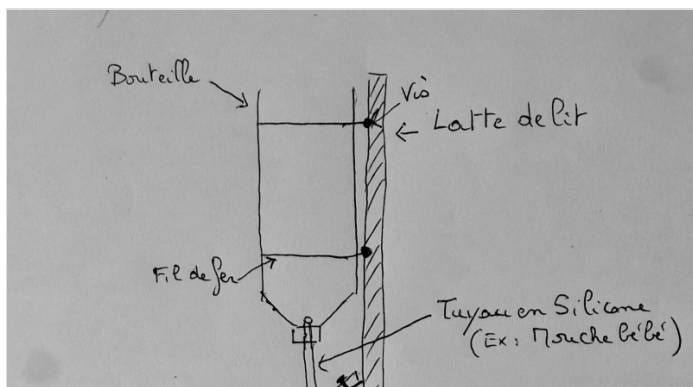 Bouteille
Vis
Latte de lit
Fil de fer
Tuyau en Silicone
(Ex: Mouche bébé)